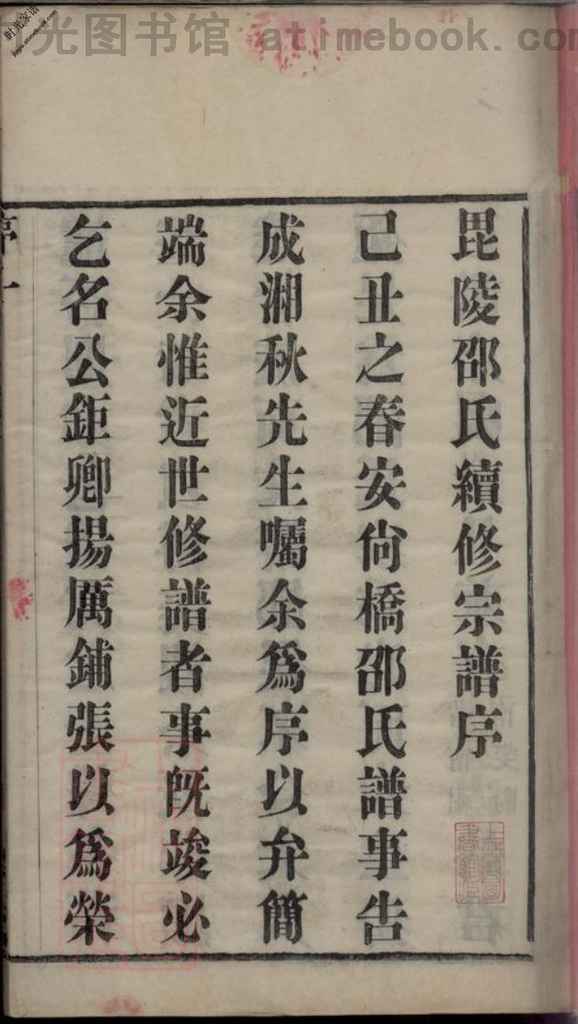 光图书馆 atimebook.com
毘陵邵氏續修宗譜序
己丑之春安尙橋邵氏譜事告
成湘秋先生囑余爲序以弁簡
端余惟近世修譜者事旣竣必
乞名公鉅卿揚厲鋪張以爲榮
序一